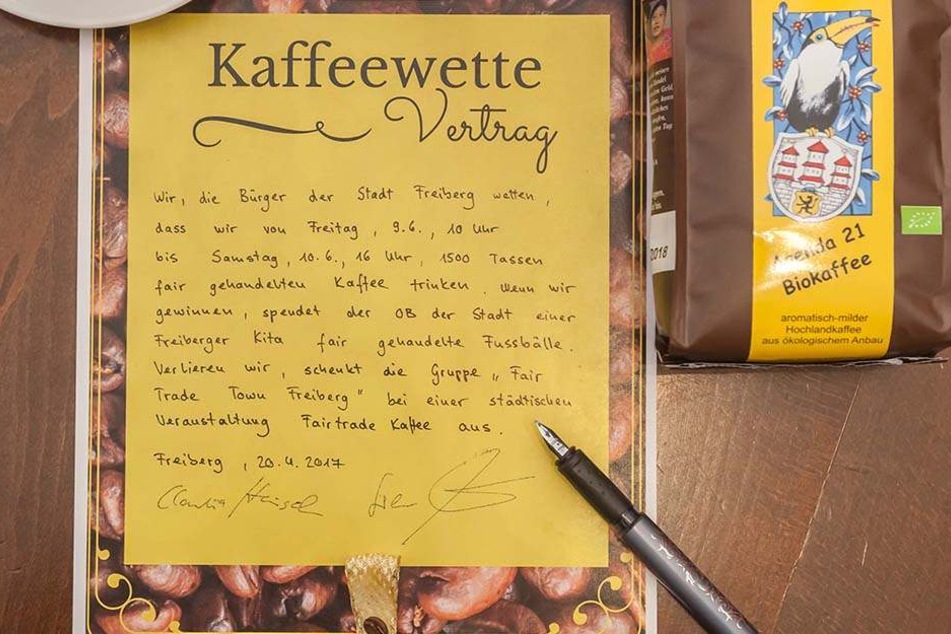 Kaffeewette
Vertrag
Wir, die Bürger der Stadt Freiberg wetten,
dass wir von Freitag, 9.6., 10 Uhr
bis Samstag, 10.6., 16 Uhr, 1500 Tassen
fair gehandelten Kaffee trinken. Wenn wir
gewinnen, spendet der OB der Stadt einer
Freiberger Kita fair gehandelte Fussbälle.
Verlieren wir, schenkt die Gruppe „Fair
Trade Town Freiberg" bei einer städtischen
Veranstaltung Fairtrade Kaffee aus.
Freiberg, 20.4.2017
Claudia
2018
Agenda 21
Biokaffee
aromatisch-milder
Hochlandkaffee
aus ökologischem Anbau